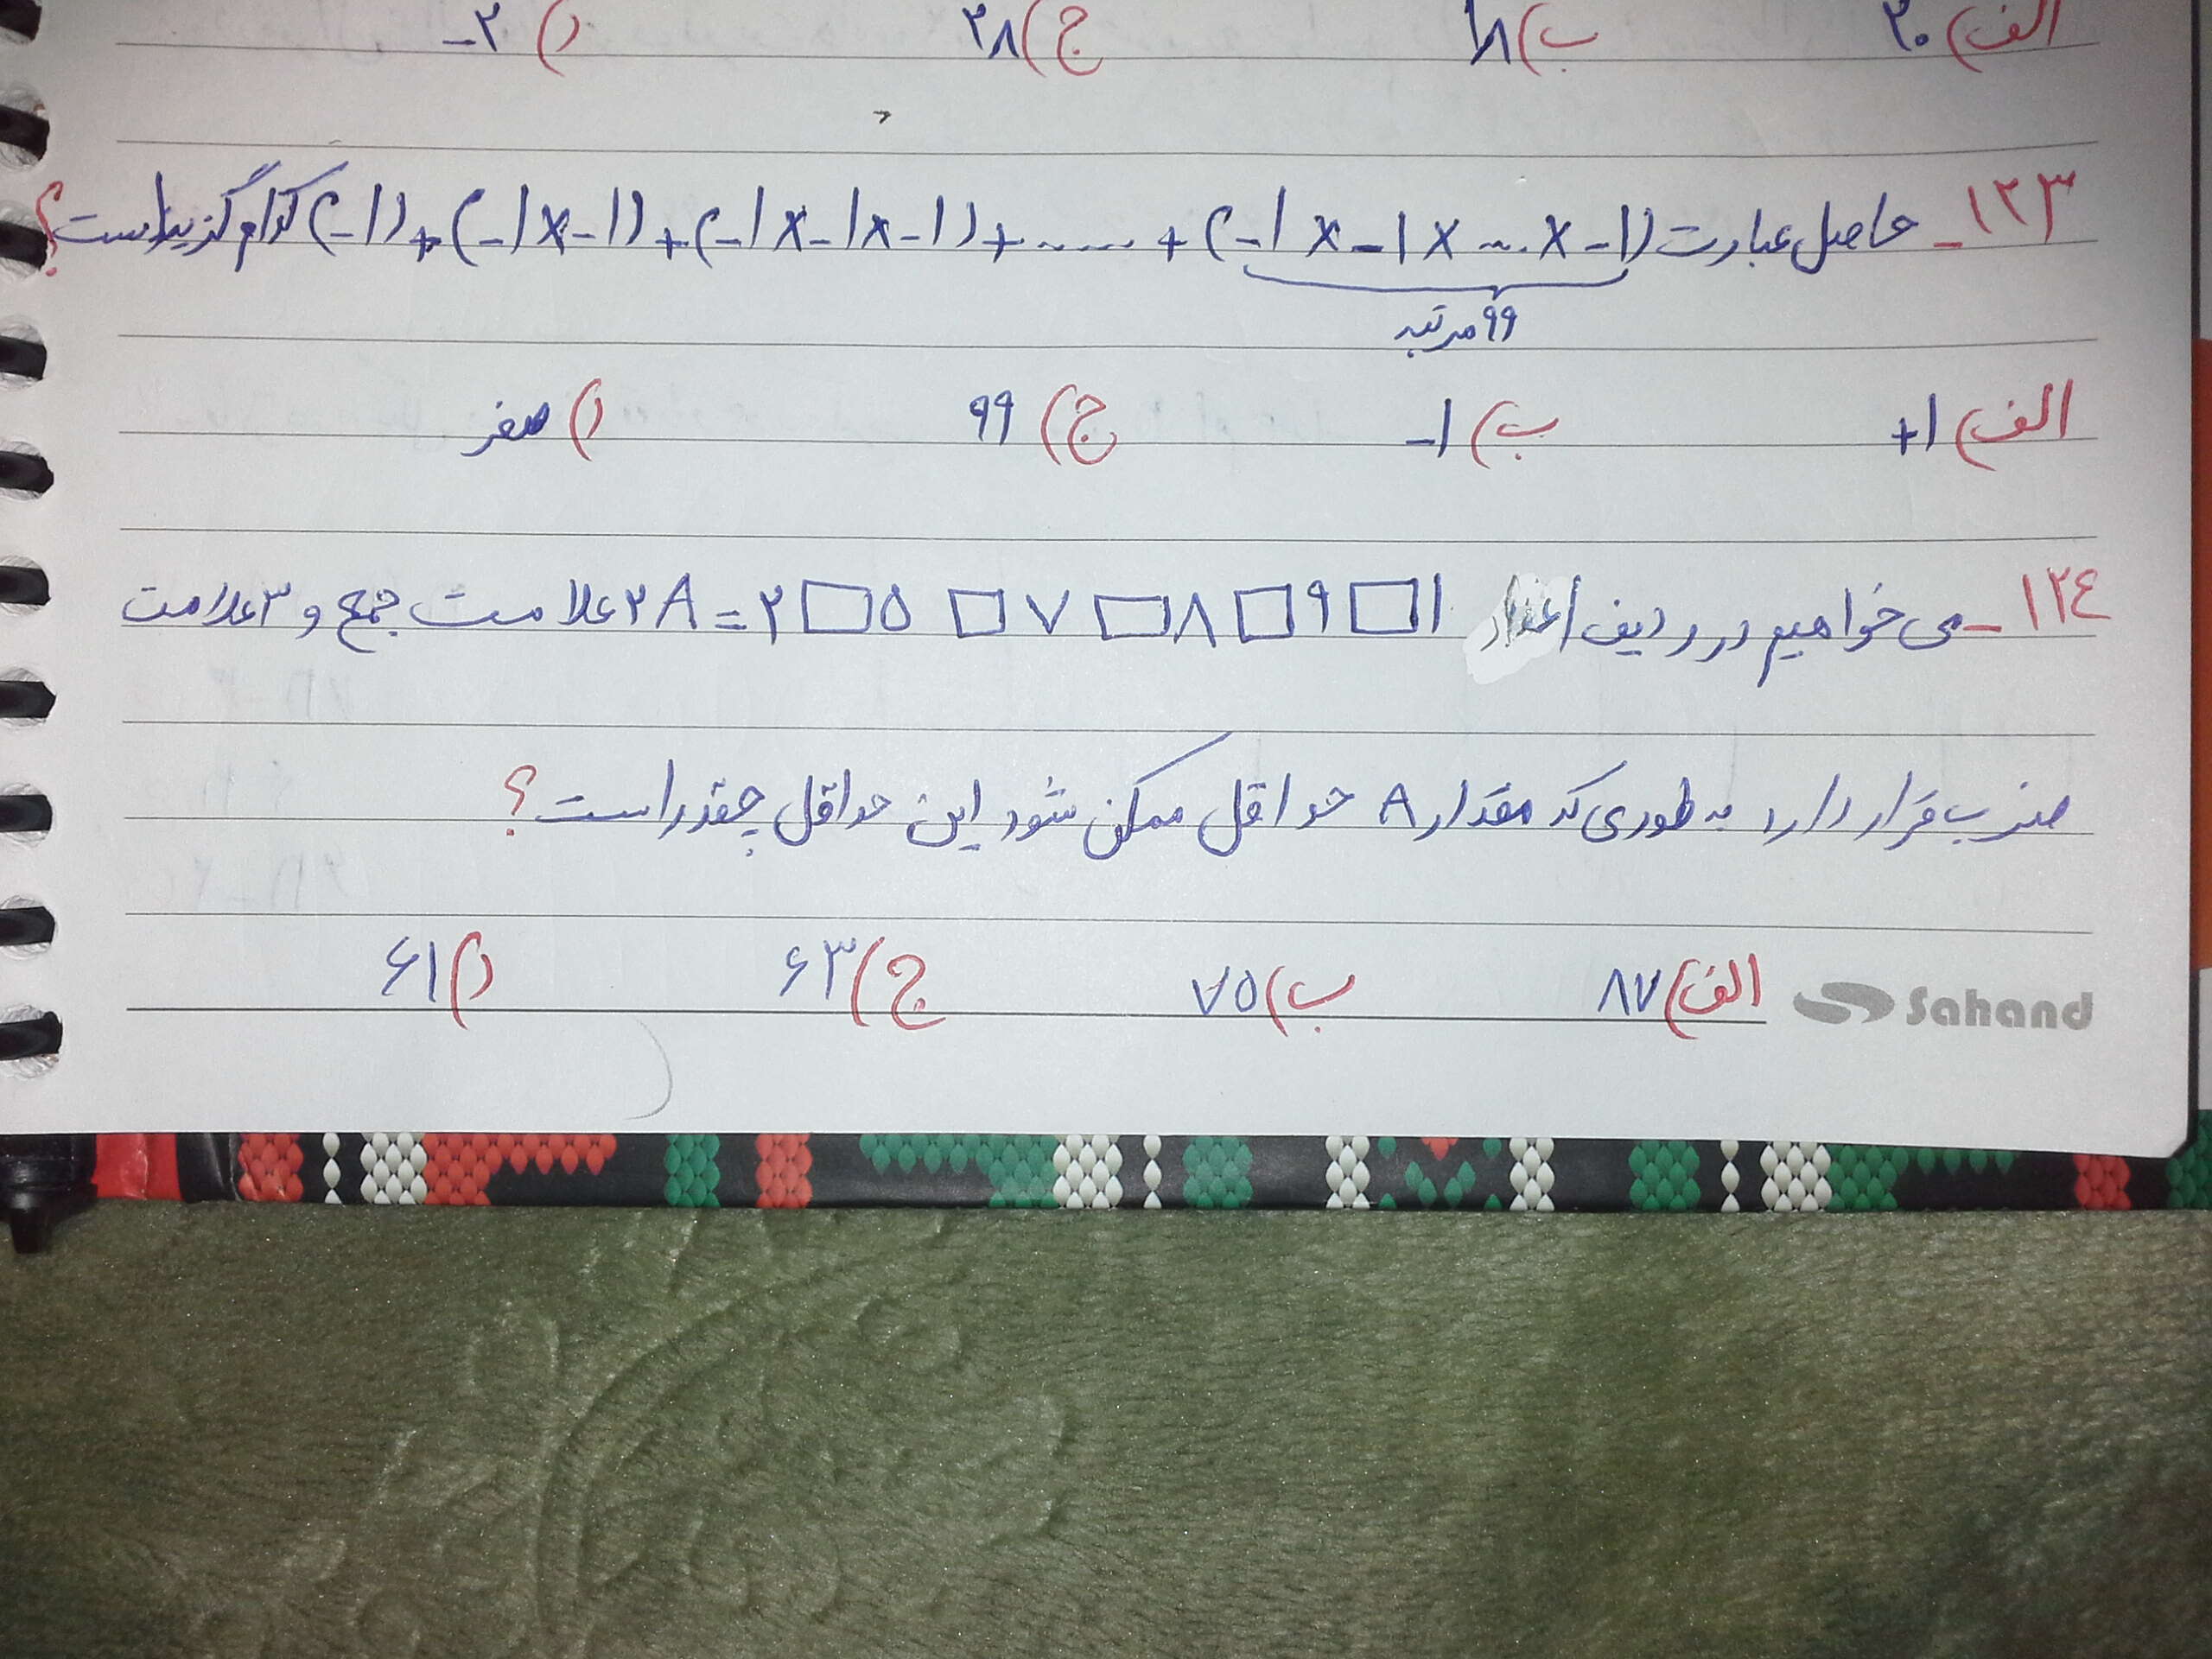 الف) ۳۰ ب) ۱۸ ج) ۲۸ د) -۲
۱۲۳_ حاصل عبارت (-۱)+(-۱×-۱)+(-۱×-۱×-۱)+......+(-۱×-۱×...×-۱) کدام گزینه است؟
۹۹ مرتبه
الف) +۱ ب) -۱ ج) ۹۹ د) صفر
۱۲٤_ می خواهیم در ردیف اعداد A = ۲□۵□۷□۸□۹□۱ ۲ علامت جمع و ۳ علامت
ضرب قرار دارد به طوری که مقدار A حداقل ممکن شود این حداقل چقدر است؟
الف) ۸۷ ب) ۷۵ ج) ۶۳ د) ۶۱
Sahand